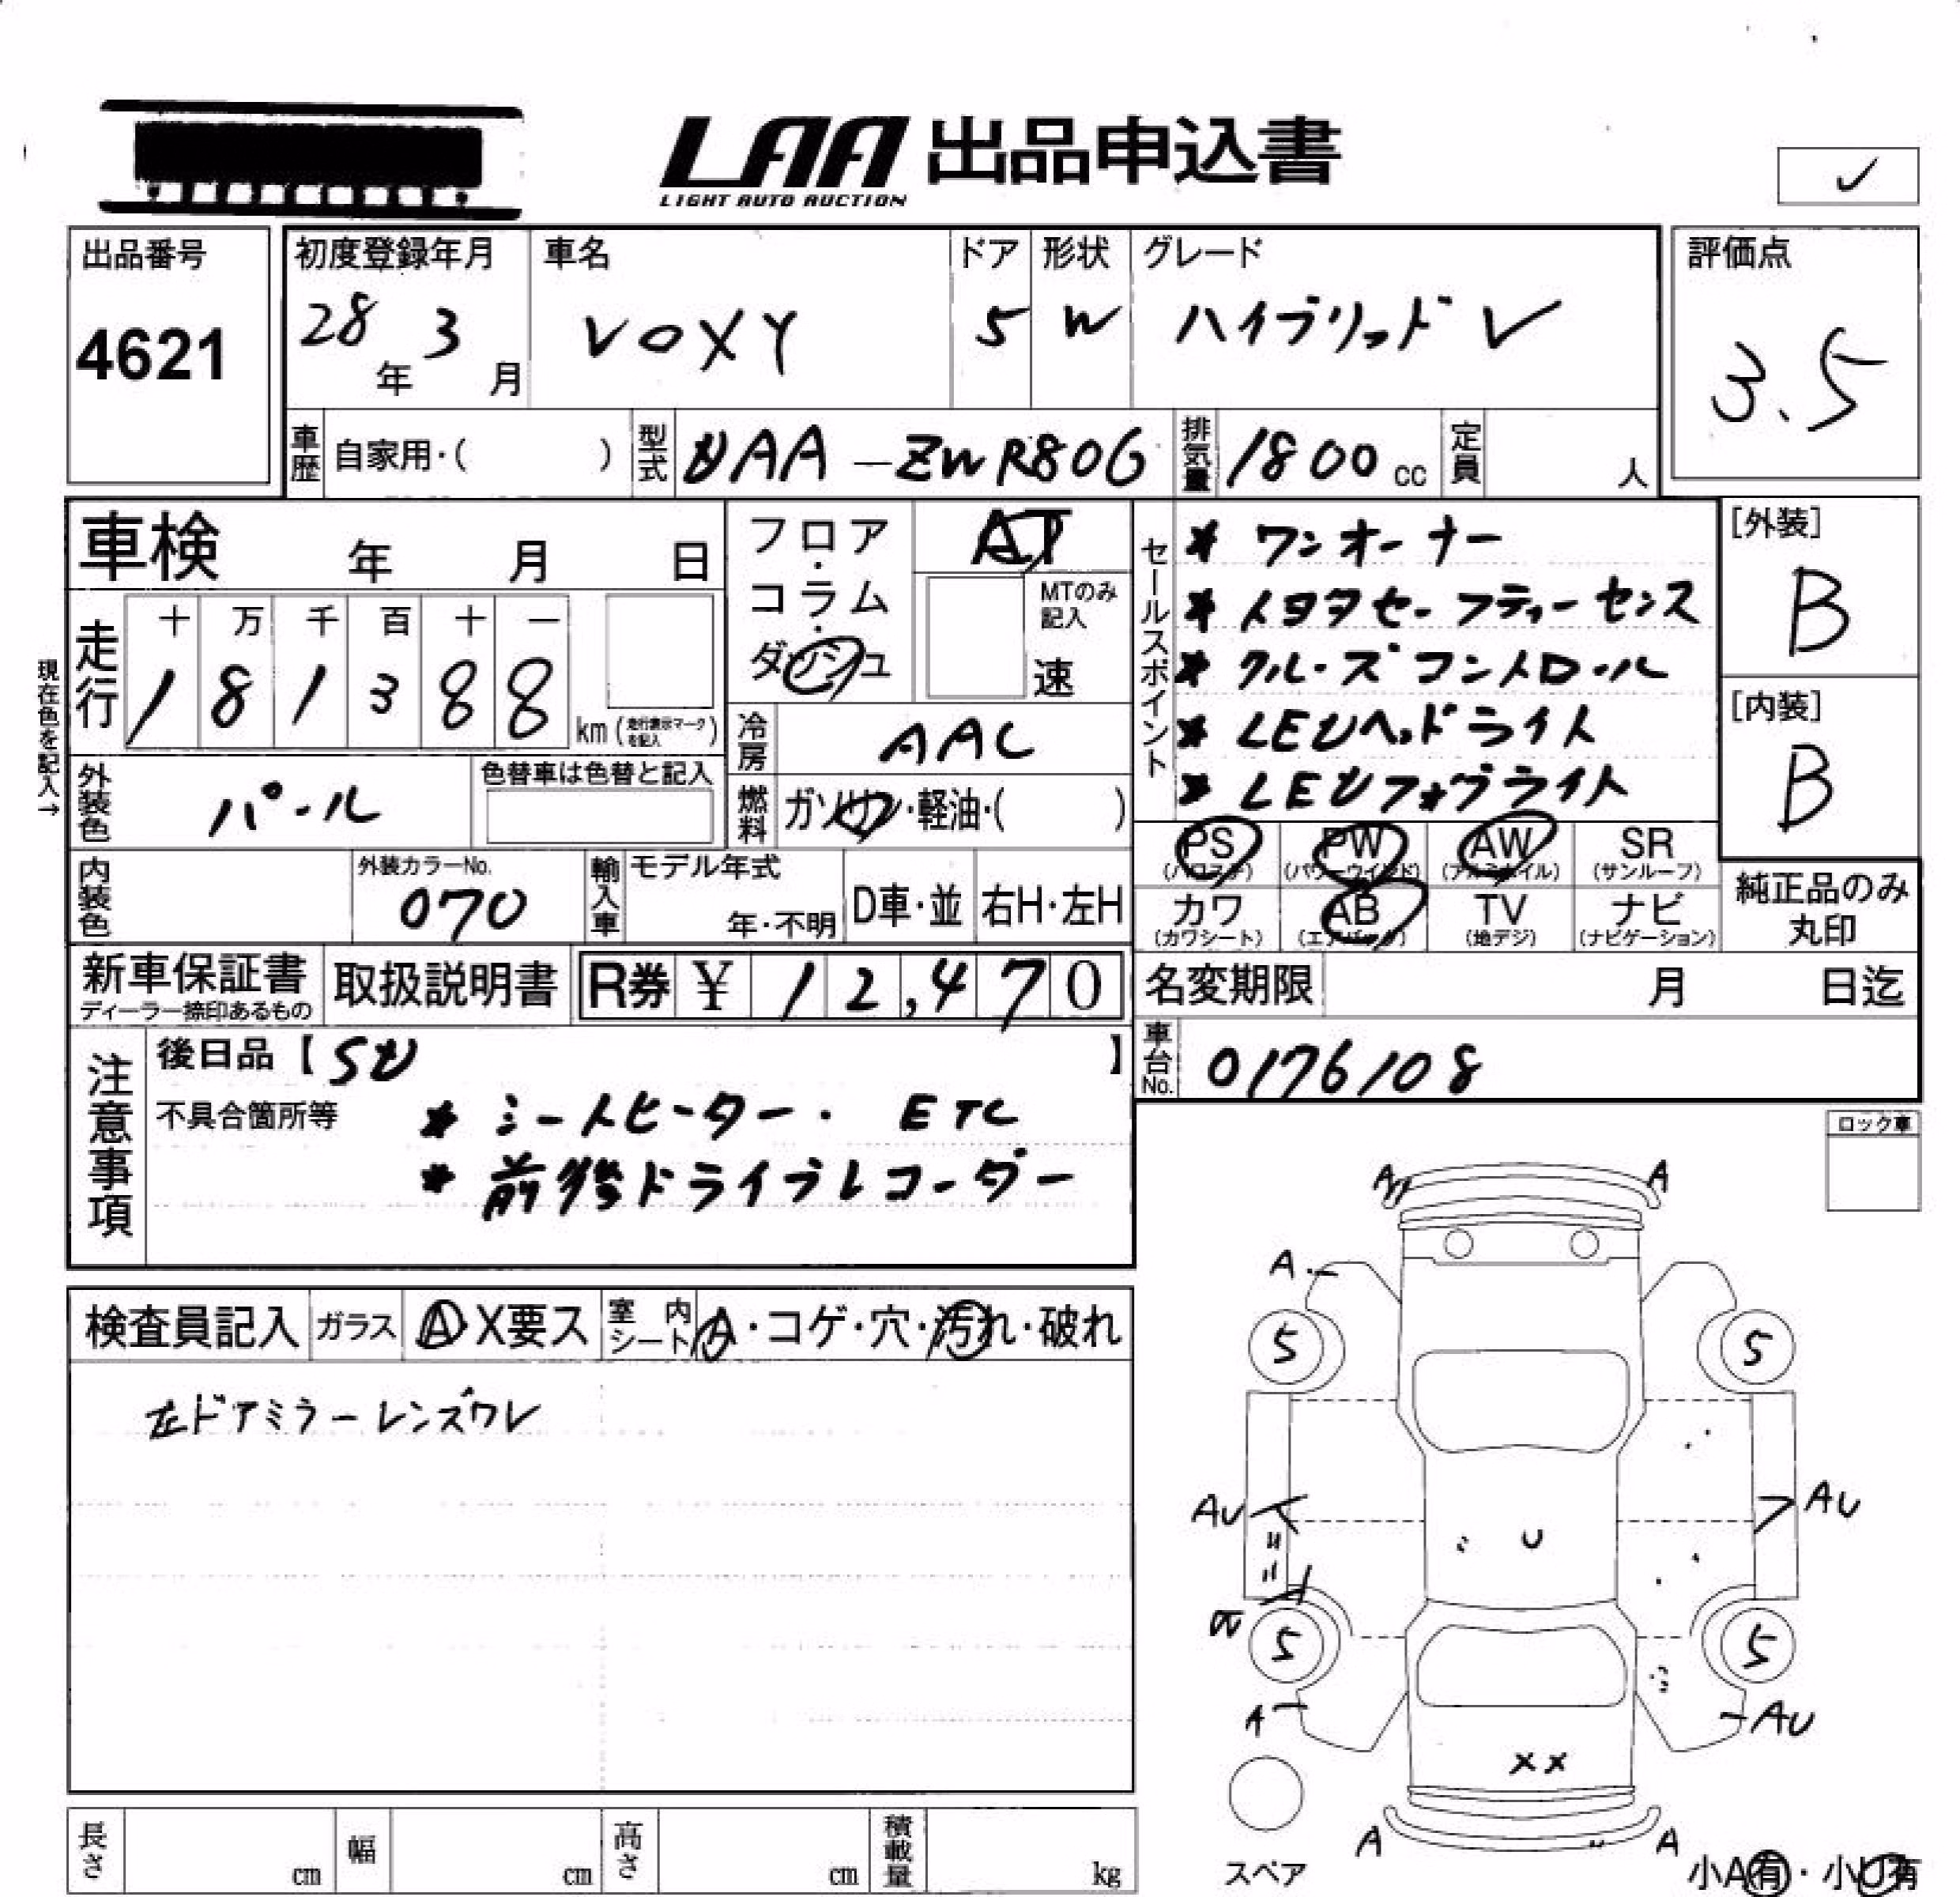 LAA 出品申込書
LIGHT AUTO AUCTION
✓
出品番号
4621
初度登録年月
28年 3月
車名
VOXY
ドア
5
形状
W
グレード
ハイブリッド V
評価点
3.5
車歴 自家用・( )
型式 DAA-ZWR80G
排気量 1800 cc
定員 人
車検 年 月 日
フロア・コラム・ダッシュ
AT
MTのみ記入
速
セールスポイント
* ワンオーナー
* トヨタセーフティーセンス
* クルーズコントロール
* LEDヘッドライト
* LEDフォグライト
[外装]
B
[内装]
B
現在色を記入→
走行 十 万 千 百 十 一
1 8 1 3 8 8 km (走行表示マークを記入)
冷房 AAC
外装色 パール
色替車は色替と記入
燃料 ガソリン・軽油・( )
PS (パワステ)
PW (パワーウインド)
AW (アルミホイル)
SR (サンルーフ)
カワ (カワシート)
AB (エアバック)
TV (地デジ)
ナビ (ナビゲーション)
純正品のみ丸印
内装色
外装カラーNo.
070
輸入車 モデル年式
年・不明
D車・並
右H・左H
新車保証書
ディーラー捺印あるもの
取扱説明書
R券 ¥ 12,470
名変期限 月 日迄
車台No. 0176108
注意事項
後日品【SD 】
不具合箇所等
* シートヒーター. ETC
* 前後ドライブレコーダー
ロック車
検査員記入
ガラス A・X要ス
室内シート A・コゲ・穴・汚れ・破れ
左ドアミラーレンズワレ
A A
A
5 5
AU AU
U
5 5
A AU
XX
A A
スペア
小A有・小U有
長さ cm
幅 cm
高さ cm
積載量 kg